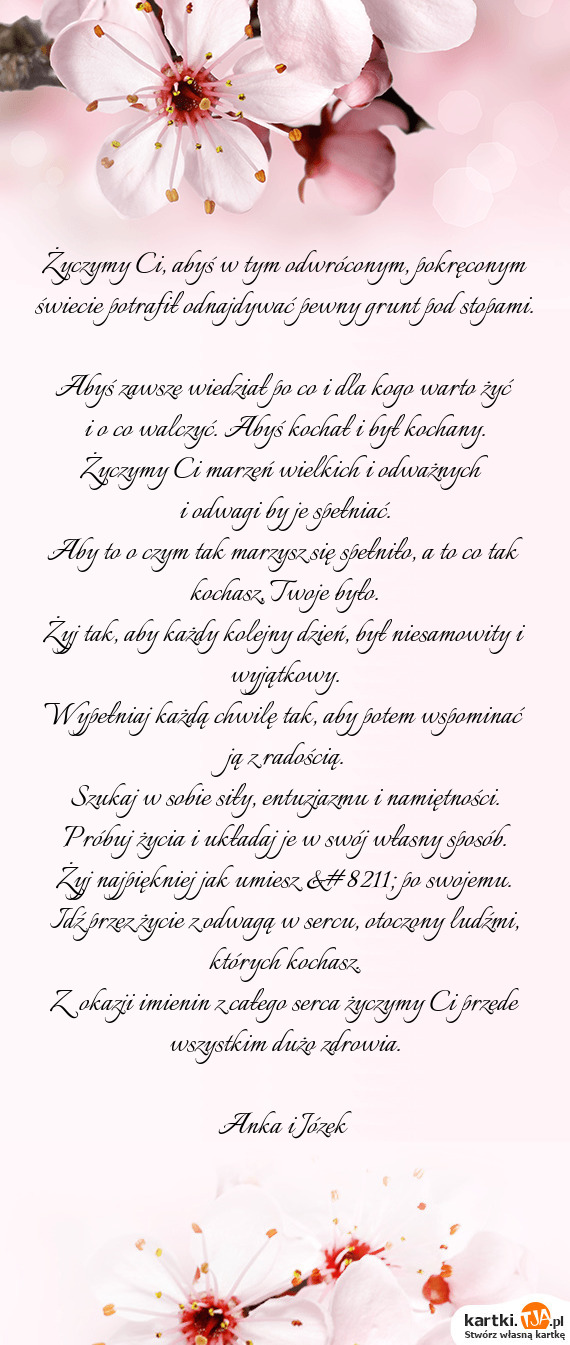 Życzymy Ci, abyś w tym odwróconym, pokręconym
świecie potrafił odnajdywać pewny grunt pod stopami.
Abyś zawsze wiedział po co i dla kogo warto żyć
i o co walczyć. Abyś kochał i był kochany.
Życzymy Ci marzeń wielkich i odważnych
i odwagi by je spełniać.
Aby to o czym tak marzysz się spełniło, a to co tak
kochasz, Twoje było.
Żyj tak, aby każdy kolejny dzień, był niesamowity i
wyjątkowy.
Wypełniaj każdą chwilę tak, aby potem wspominać
ją z radością.
Szukaj w sobie siły, entuzjazmu i namiętności.
Próbuj życia i układaj je w swój własny sposób.
Żyj najpiękniej jak umiesz &#8211; po swojemu.
Idź przez życie z odwagą w sercu, otoczony ludźmi,
których kochasz.
Z okazji imienin z całego serca życzymy Ci przede
wszystkim dużo zdrowia.
Anka i Józek
kartki.TJA.pl
Stwórz własną kartkę